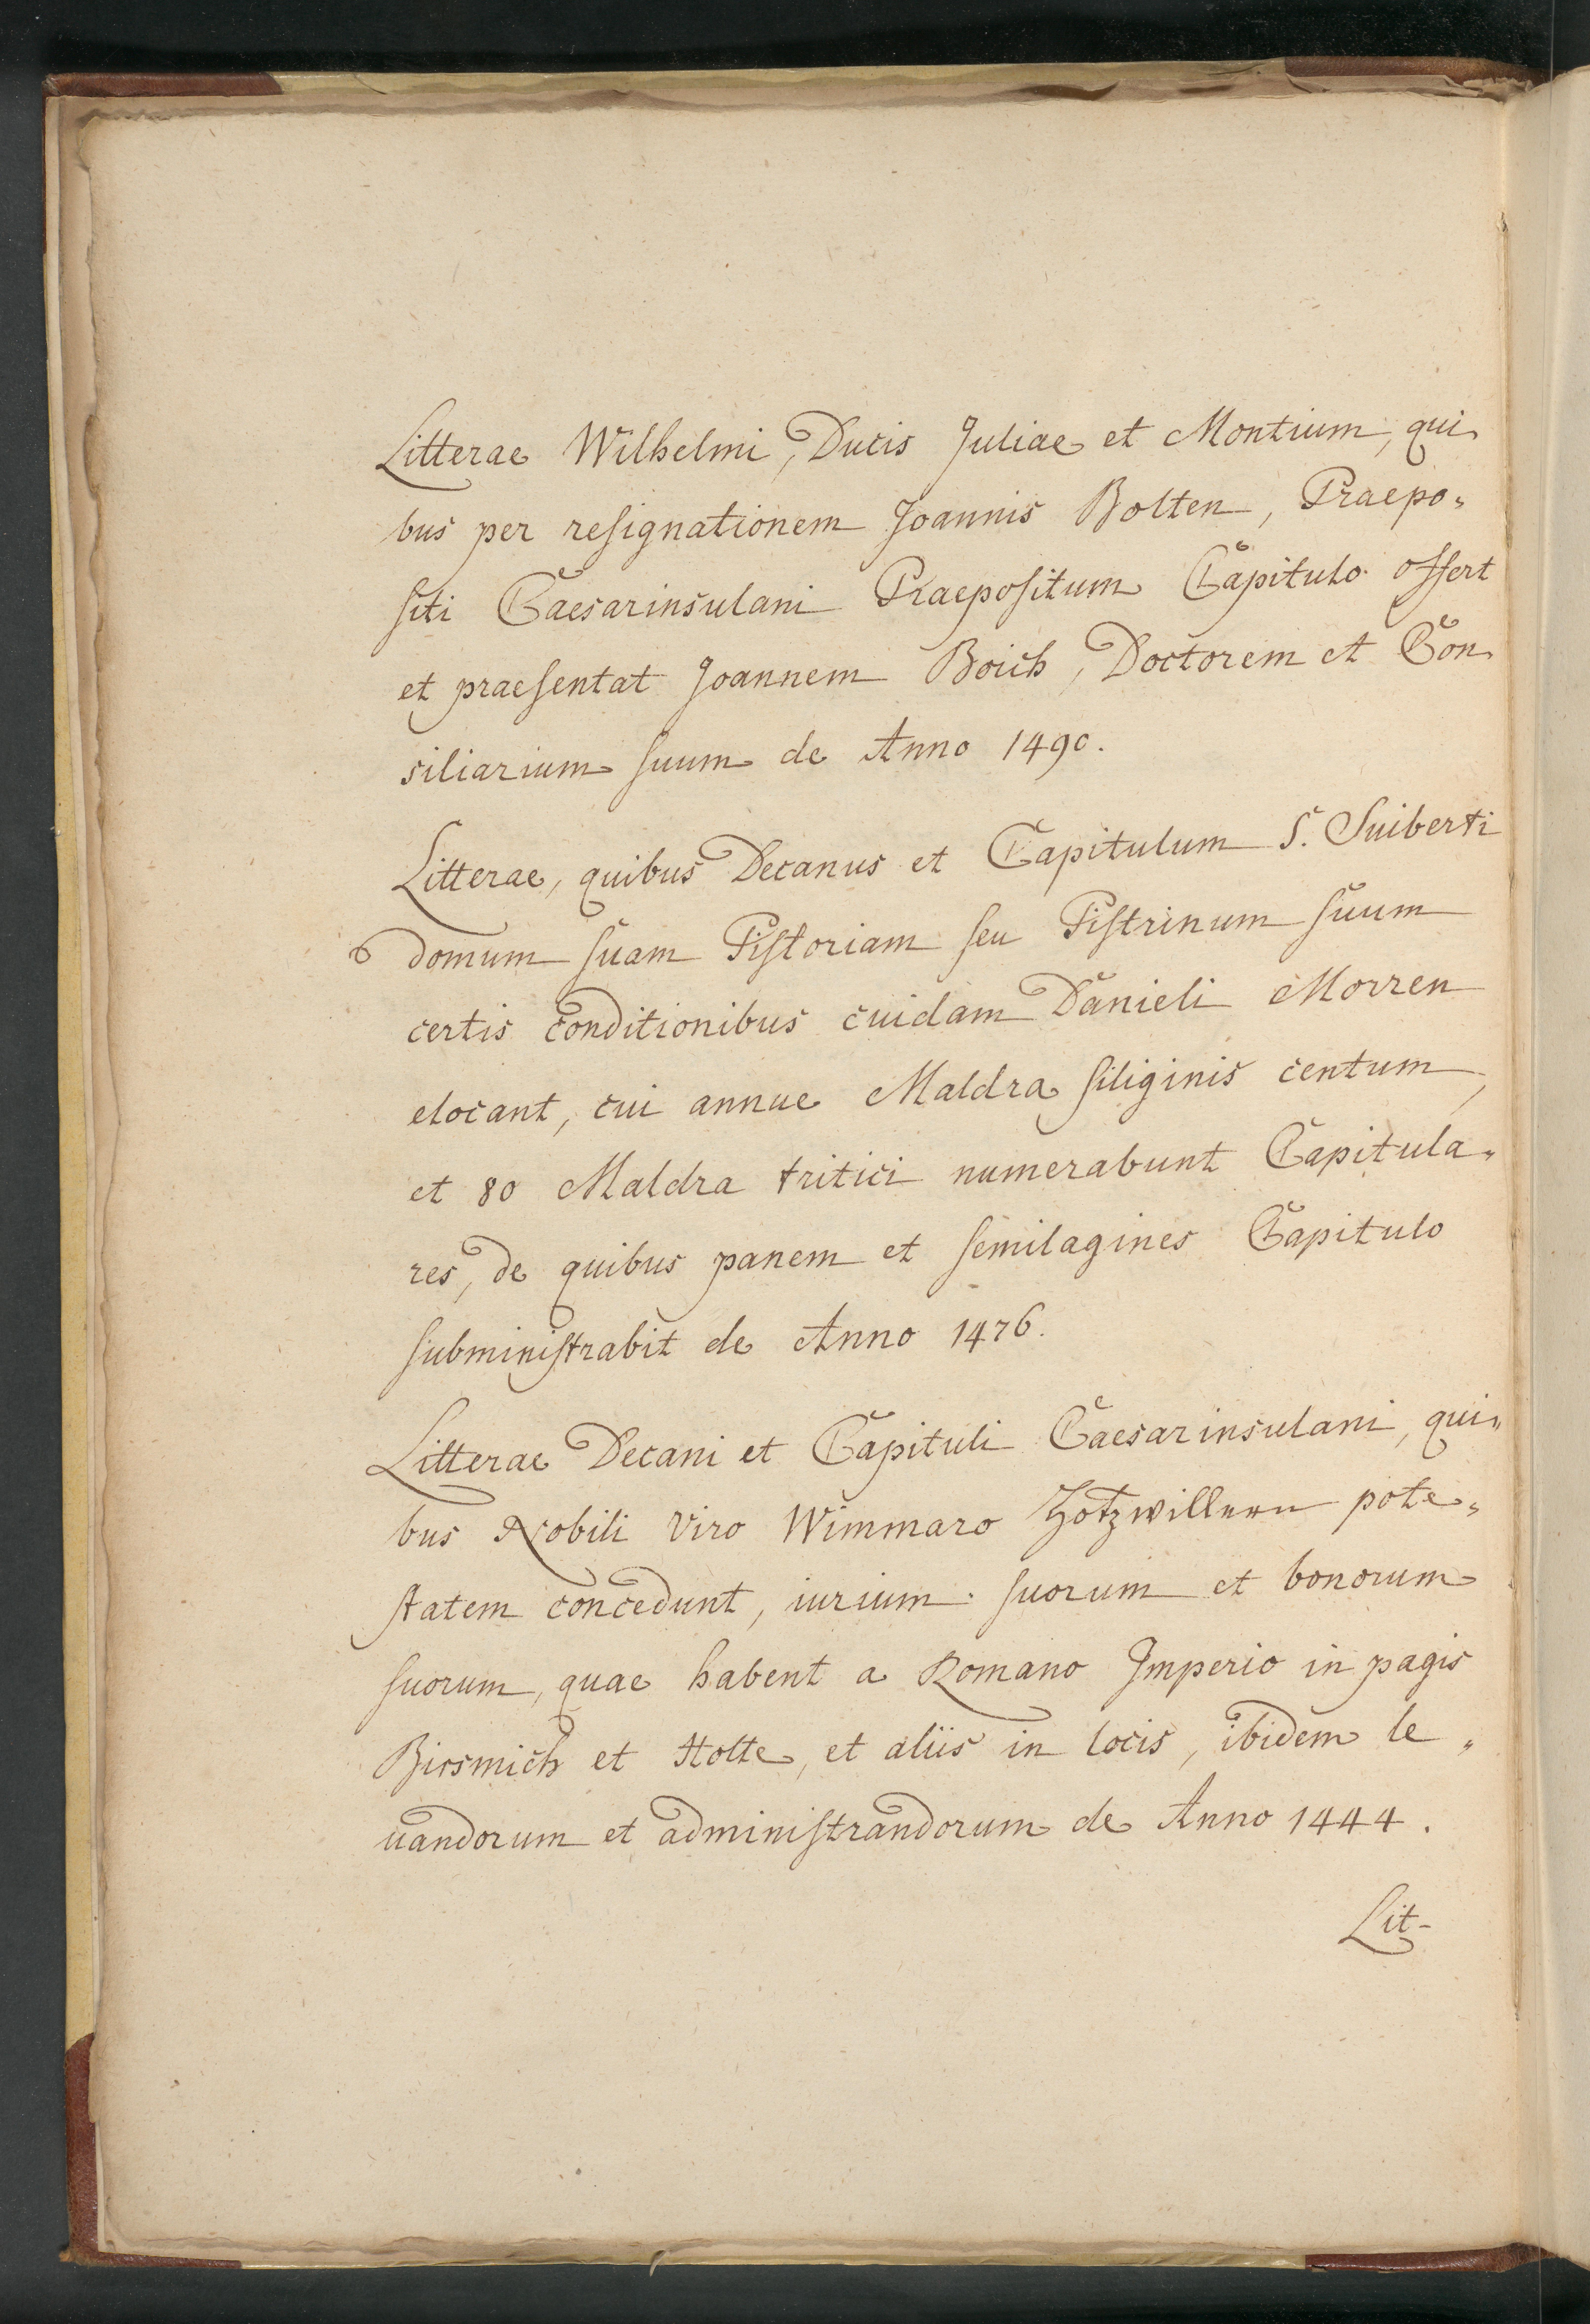 Litterae Wilhelmi, Ducis Juliae et Montium, qui
bus per resignationem Joannis Bolten, Praepo„
siti Caesarinsulani Praepositum Capitulo offert
et praesentat Joannem Boich, Doctorem et Con
siliarium suum de Anno 1490.
Litterae, quibus Decanus et Capitulum S. Suiberti
domum suam Pistoriam seu Pistrinum suum
certis conditionibus cuidam Danieli Morren
elocant, cui annue Maldra siliginis centum,
et 80 Maldra tritici numerabunt Capitula„
res, de quibus panem et semilagines Capitulo
subministrabit de Anno 1476.
Litterae Decani et Capituli Caesarinsulani, qui„
bus Nobili Viro Wimmaro pote„
statem concedunt, iurium suorum et bonorum
suorum, quae habent a Romano Imperio in pagis
Birsmich et Holte, et aliis in locis, ibidem le„
uandorum et administrandorum de Anno 1444.
Lit-